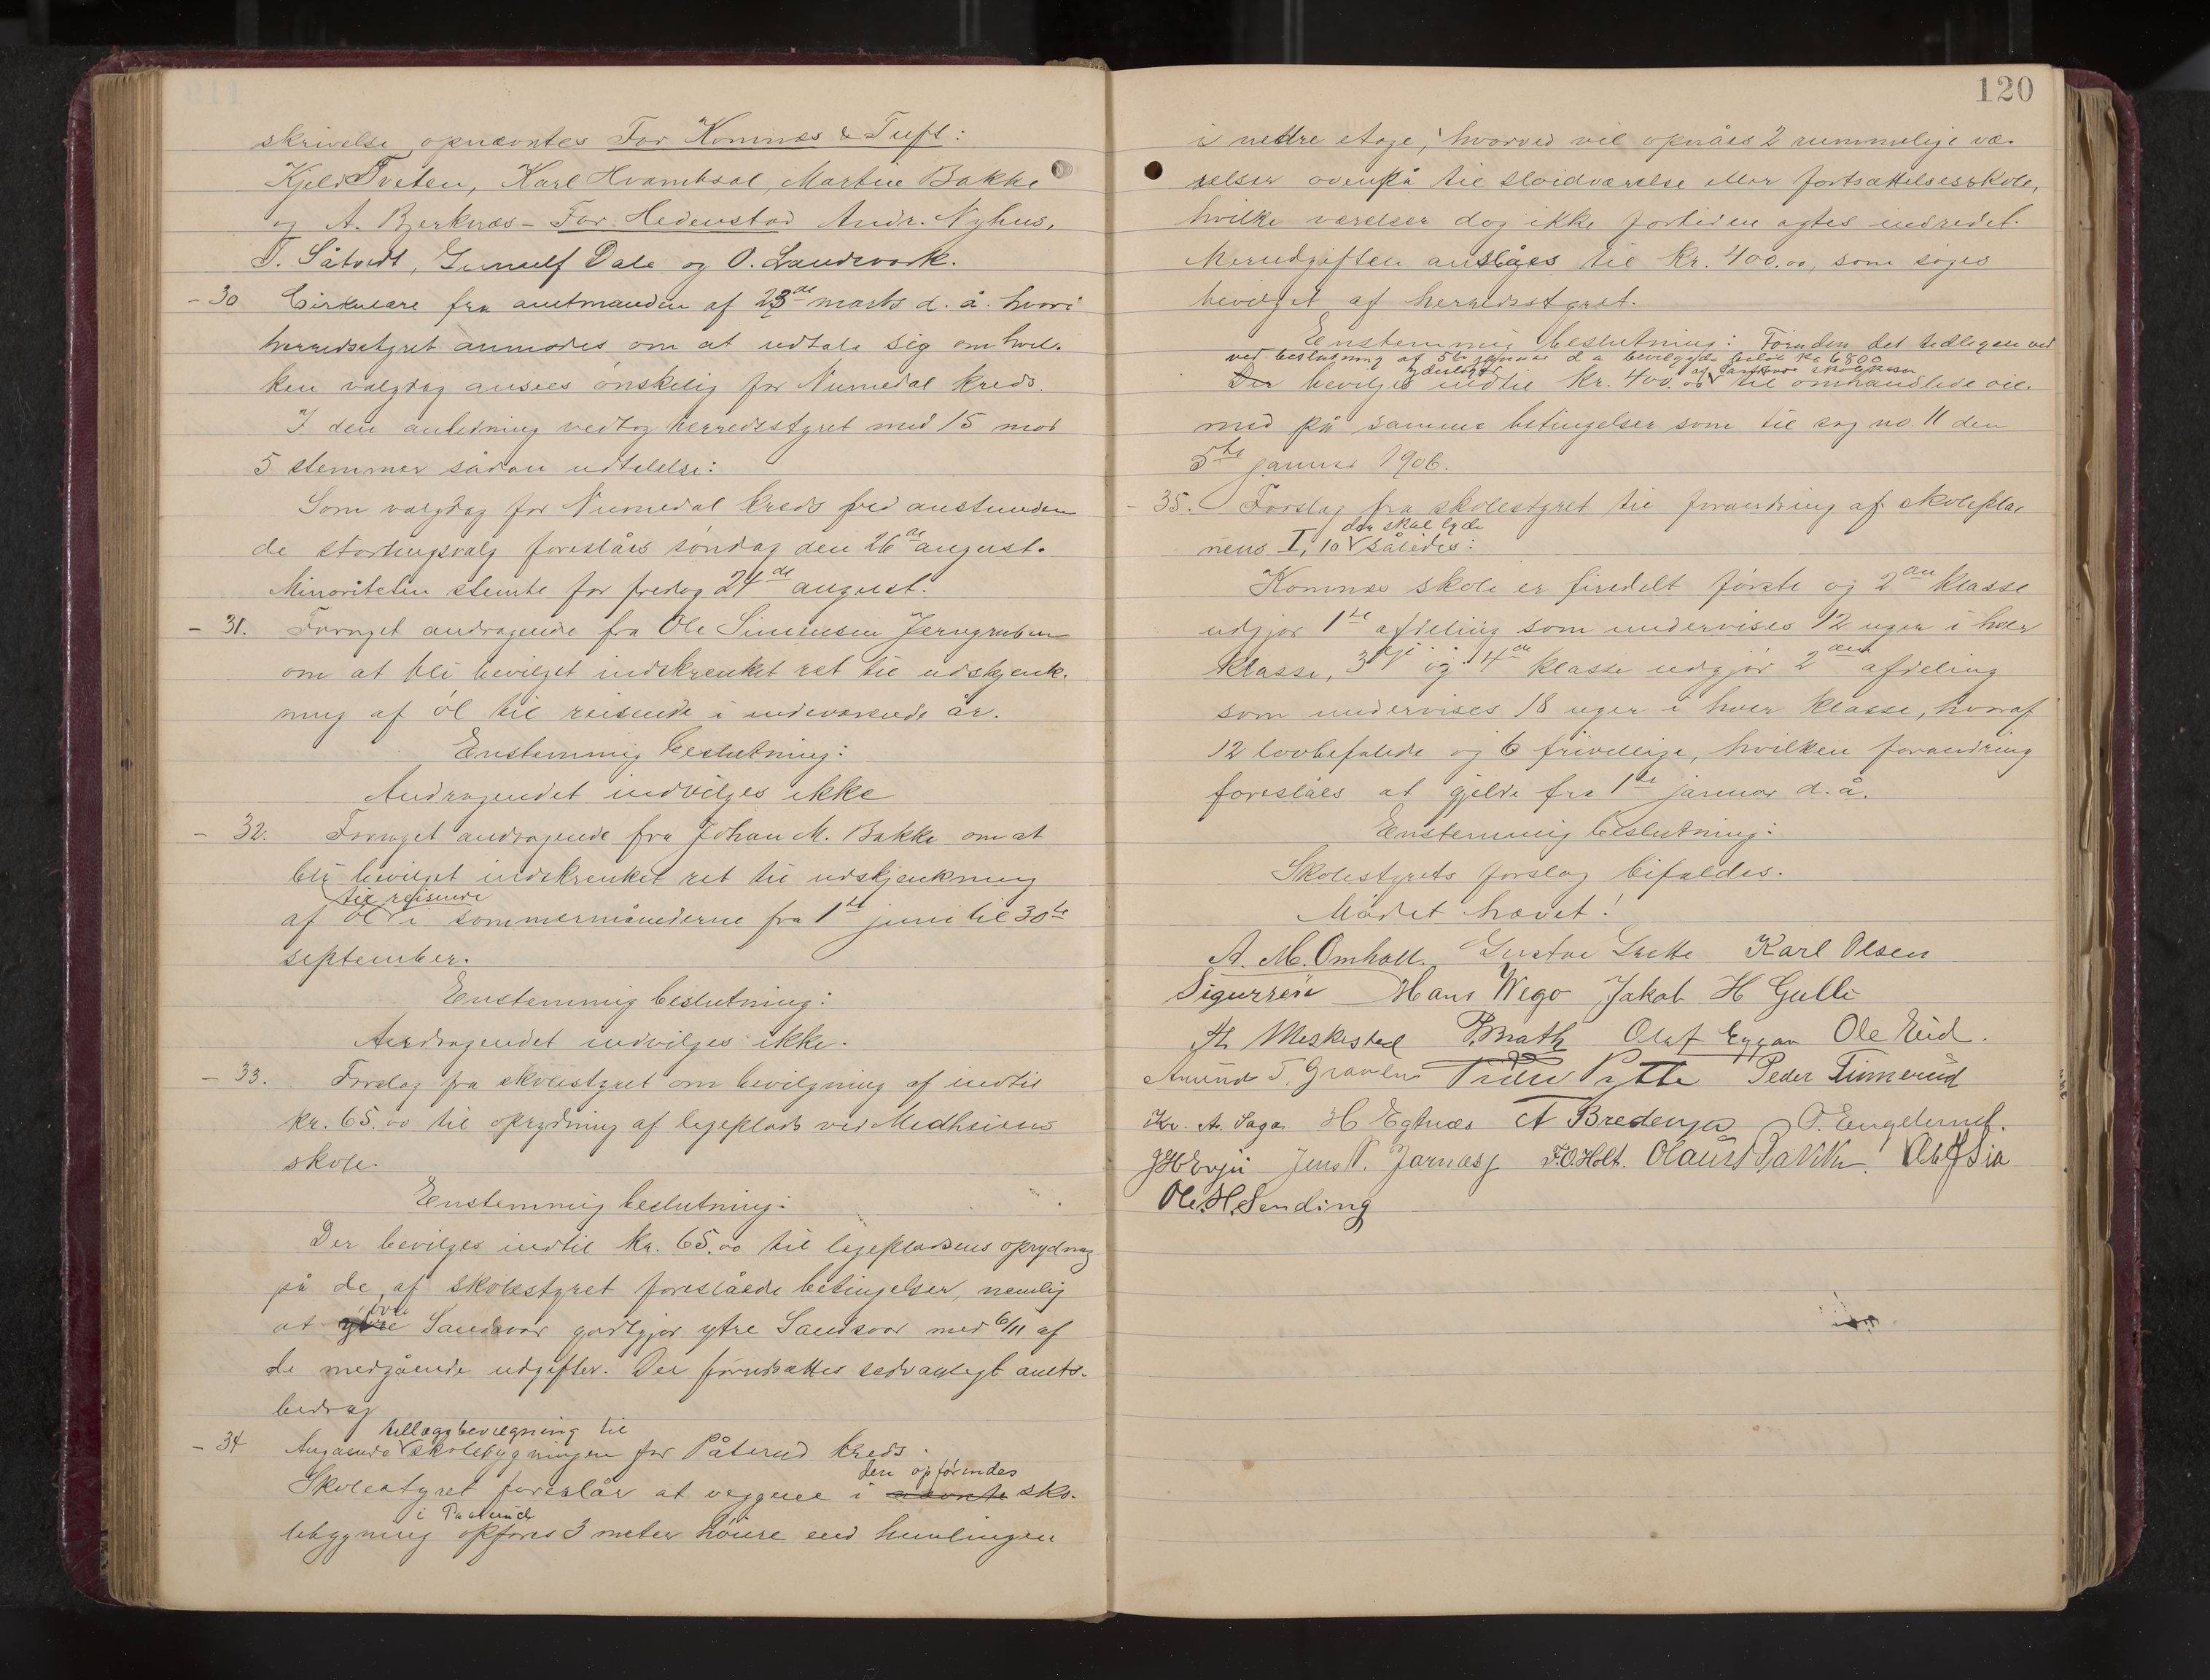 skrivelse opnævntes For Komnæs & Tuft:
Kjeld Tveten, Karl Hvambsal, Martin Bakke
og A. Bjerknæs – For Hedenstad Andr. Nyhus,
T. Såtvedt, Gunnulf Dale og O. Landsverk.
– 30 Cirkulære fra amtmanden af 23de marts d. å. hvori
herredsstyret anmodes om at udtale sig om hvil-
ken valgdag ansees ønskelig for Numedal kreds.
I den anledning vedtog herredsstyret med 15 mod
5 stemmer sådan udtalelse:
Som valgdag for Numedal kreds ved anstunden-
de stortingsvalg foreslåes søndag den 26de august.
Minoriteten stemte for fredag 24de august.
– 31. Fornyet andragende fra Ole Simensen Jerngruben
om at bli bevilget indskrenket ret til udskjenk-
ning af øl til reisende i indeværende år.
Enstemmig beslutning:
Andragendet indvilges ikke
– 32. Fornyet andragende fra Johan M. Bakke om at
bli bevilget indskrenket ret til udskjenkning
til reisende
af øl i sommermånederne fra 1ste juni til 30te
september.
Enstemmig beslutning:
Andragendet indvilges ikke.
– 33. Forslag fra skolestyret om bevilgning af indtil
kr. 65.00 til oprydning af legeplads ved Medheims
skole.
Enstemmig beslutning:
Der bevilges indtil kr. 65.00 til legepladsens oprydning
på de af skolestyret foreslåede betingelser, nemlig
øvre
at Sandsvær godtgjør ytre Sandsvær med 6/11 af
de medgående udgifter. Der forudsættes sedvanligt amts-
bidrag
tillægsbevilgning til
– 34 Angående skolebygningen for Påterud kreds.
den opførendes
Skolestyret foreslår at veggene i nævnte sko-
i Paaterud
lebygning opføres 3 meter høiere end hen
120
i nedre etage, hvorved vil opnåes 2 rummelige væ-
relser ovenpå til sløidværelse eller fortsættelsesskole,
hvilke værelser dog ikke fortiden agtes indredet.
Merudgiften anslåes til kr. 400.00, som søges
bevilget af herredsstyret.
Enstemmig beslutning: Foruden det tidligere ved
ved beslutning af 5te januar d a bevilgede beløb kr 6800
yderligere af Sandsvær skolekasse
Der bevilges indtil kr. 400.00 til omhandlede øie-
med på samme betingelser som til sag no. 11 den
5te januar 1906.
– 35. Forslag fra skolestyret til forandring af skolepla-
der skal lyde
nens I, 10 således:
Komnæs skole er firedelt første og 2den klasse
udgjør 1ste afdeling som undervises 12 uger i hver
klasse, 3dje og 4de klasse udgjør 2den afdeling
som undervises 18 uger i hver klasse, hvoraf
12 lovbefalede og 6 frivillige, hvilken forandring
foreslåes at gjelde fra 1ste januar d. å.
Enstemmig beslutning:
Skolestyrets forslag bifaldes.
Mødet hævet!
A. M. Omholt. Gustav Karl Olsen
Hans Wego Jakob H Gulli
Olaf Eggar Ole Eid.
Amund T. Graven Peder
Kr. A. Saga H Egtnæs A Bredenges
Jens P. Jarnæs T.O. Holt.
Ole. H. Sending